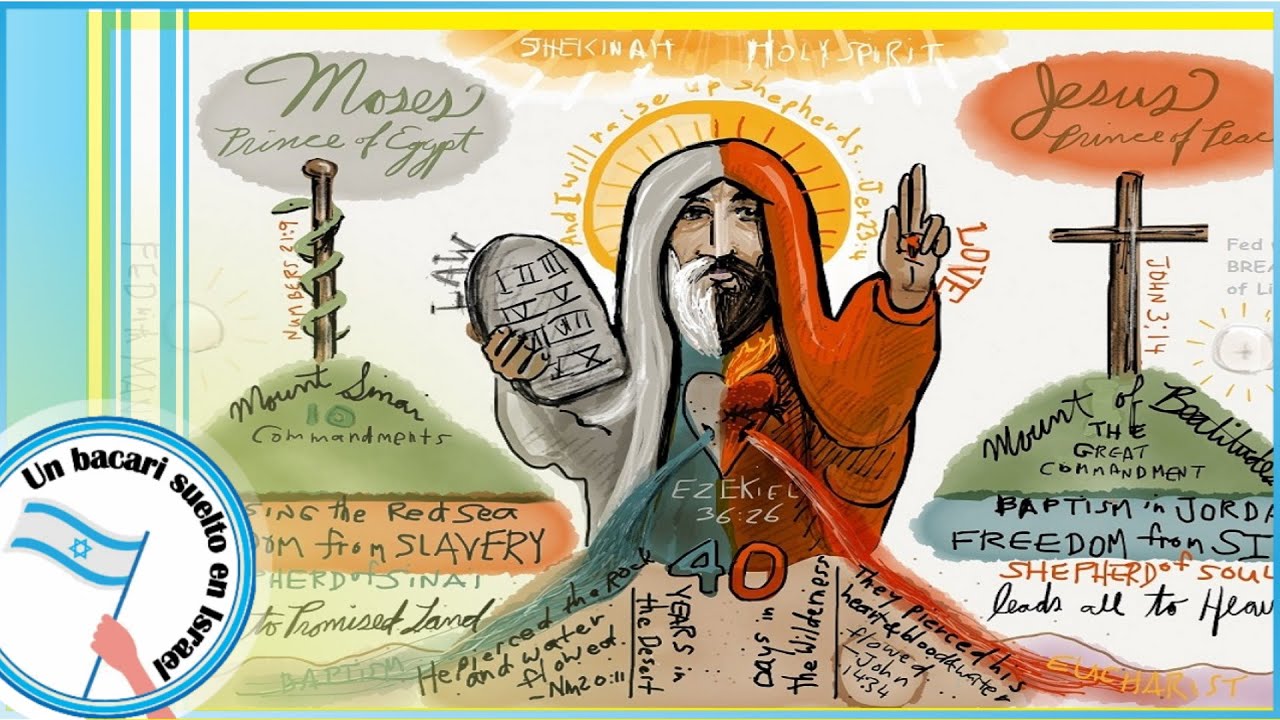 SHEKINAH HOLY SPIRIT
Moses
Prince of Egypt
And I will raise up shepherds... Jer 23:4
Jesus
Prince of Peac
NUMBERS 21:9
LAW
I II III
LOVE
JOHN 3:14
Fed
BREA
of Li
FED
MA
Mount Sinai
10
Commandments
Mount of Beatitudes
THE
GREAT
COMMANDMENT
EZEKIEL
36:26
SING the Red Sea
DOM from SLAVERY
PHERD of SINAI
to Promised Land
BAPTISM
BAPTISM in JORDA
FREEDOM from SI
SHEPHERD of SOUL
leads all to Heav
EUCHARIST
40
He pierced the Rock
and water
flowed.
-Nm 20:11
YEARS in
the Desert
Days in
the Wilderness
They pierced his
heart & blood & water
flowed
John
1434
Un bacari suelto en Israel